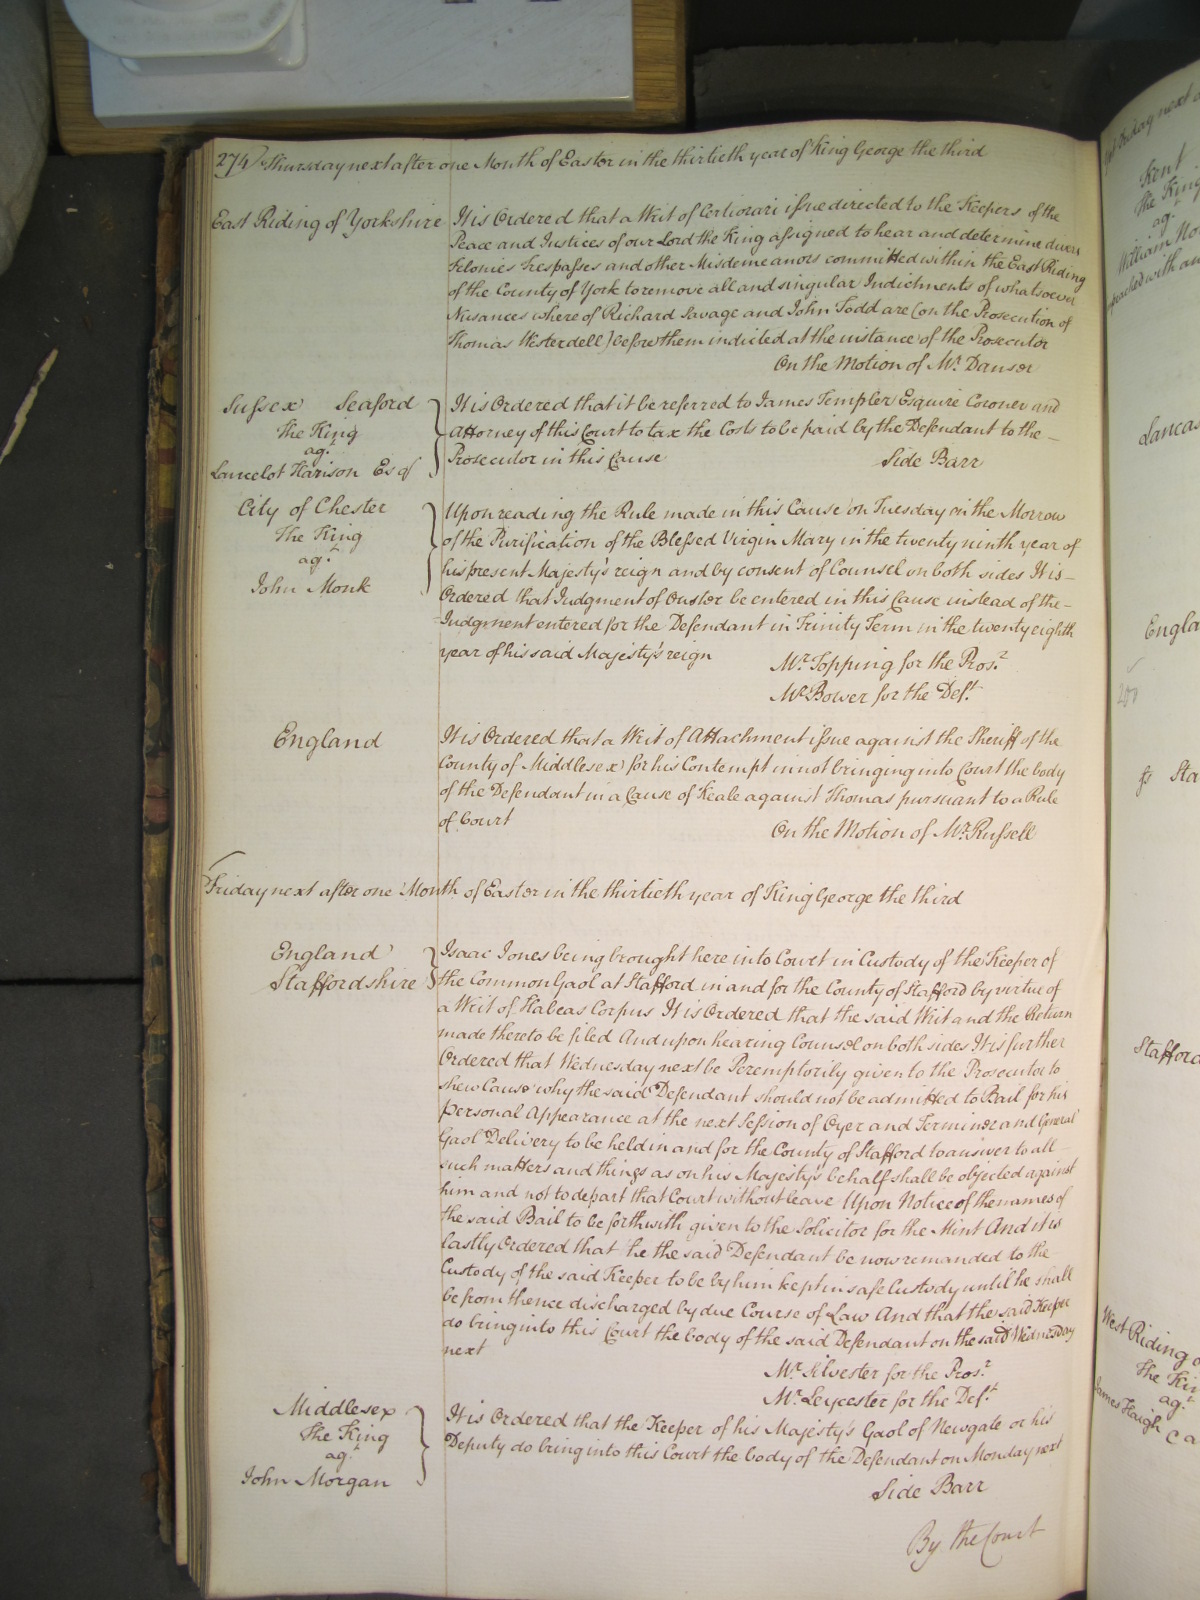 274 Thursday next after one Month of Easter in the thirtieth year of King George the third
East Riding of Yorkshire It is Ordered that a Writ of Certiorari issue directed to the Keepers of the
Peace and Justices of our Lord the King assigned to hear and determine divers
Felonies Trespasses and other Misdemeanors committed within the East Riding
of the County of York to remove all and singular Indictments of whatsoever
Nusances where of Richard Savage and John Todd are (on the Prosecution of
Thomas Westerdell) before them indicted at the instance of the Prosecutor
On the Motion of Mr. Danser
Sussex Seaford
The King
agt.
Lancelot Harison Esqr
It is Ordered that it be referred to James Templer Esquire Coroner and
Attorney of this Court to tax the Costs to be paid by the Defendant to the
Prosecutor in this Cause Side Barr
City of Chester
The King
agt.
John Monk
Upon reading the Rule made in this Cause on Tuesday on the Morrow
of the Purification of the Blessed Virgin Mary in the twenty ninth year of
his present Majesty's reign and by consent of Counsel on both sides It is
Ordered that Judgment of Ouster be entered in this Cause instead of the
Judgment entered for the Defendant in Trinity Term in the twenty eighth
year of his said Majesty's reign Mr. Topping for the Pros.r
Mr. Bower for the Def.t
England It is Ordered that a Writ of Attachment issue against the Sheriff of the
County of Middlesex for his Contempt in not bringing into Court the body
of the Defendant in a Cause of Keale against Thomas pursuant to a Rule
of Court On the Motion of Mr. Russell
Friday next after one Month of Easter in the thirtieth year of King George the third
England
Staffordshire
Isaac Jones being brought here into Court in Custody of the Keeper of
the Common Gaol at Stafford in and for the County of Stafford by virtue of
a Writ of Habeas Corpus It is Ordered that the said Writ and the Return
made thereto be filed And upon hearing Counsel on both sides It is further
Ordered that Wednesday next be Peremptorily given to the Prosecutor to
shew Cause why the said Defendant should not be admitted to Bail for his
personal Appearance at the next Session of Oyer and Terminer and General
Gaol Delivery to be held in and for the County of Stafford to answer to all
such matters and things as on his Majesty's behalf shall be objected against
him and not to depart that Court without leave Upon Notice of the names of
the said Bail to be forthwith given to the Solicitor for the Mint And it is
lastly Ordered that he the said Defendant be now remanded to the
Custody of the said Keeper to be by him kept in safe Custody until he shall
be from thence discharged by due Course of Law And that the said Keeper
do bring into this Court the body of the said Defendant on the said Wednesday
next
Mr. Silvester for the Pros.r
Mr. Leycester for the Def.t
Middlesex
The King
agt.
John Morgan
It is Ordered that the Keeper of his Majesty's Gaol of Newgate or his
Deputy do bring into this Court the body of the Defendant on Monday next
Side Barr
By the Court
Kent
The King
agt.
William
Lancas
Engla
Sta
Stafford
West Riding o
The Kin
agt.
James Haigh